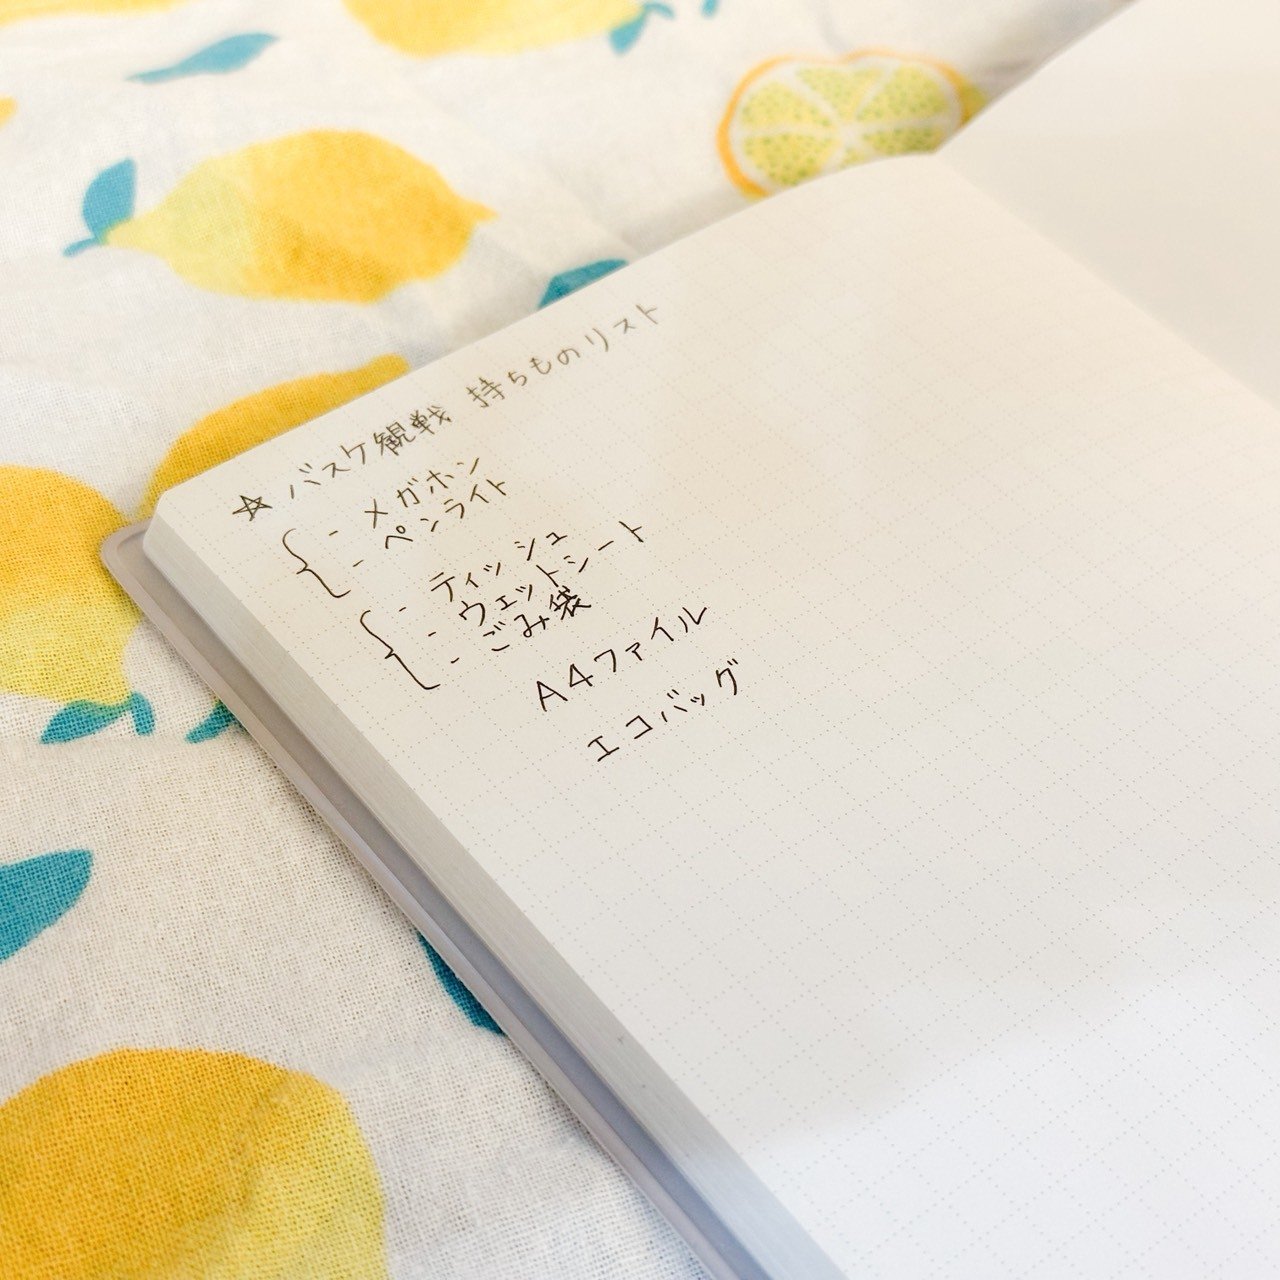 ☆ バスケ観戦 持ちものリスト
- メガホン
- ペンライト
- ティッシュ
- ウェットシート
- ごみ袋
A4ファイル
エコバッグ